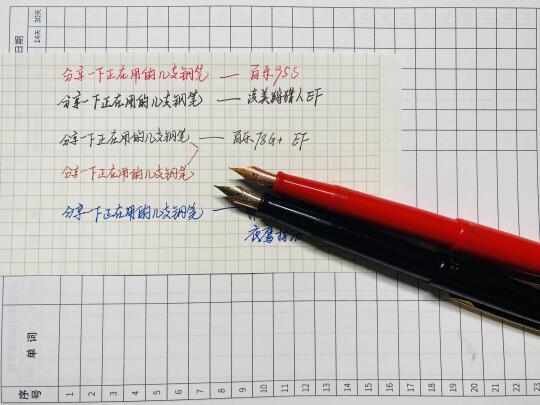 分享一下正在用的几支钢笔 — 百乐95S
分享一下正在用的几支钢笔 — 法美特猎人EF
分享一下正在用的几支钢笔 — 百乐78G+ EF
分享一下正在用的几支钢笔
分享一下正在用的几支钢笔 —
日期
14天 30天
单词
序号 1 2 3 4 5 6 7 8 9 10 11 12 13 14 15 16 17 18 19 20 21 22 23